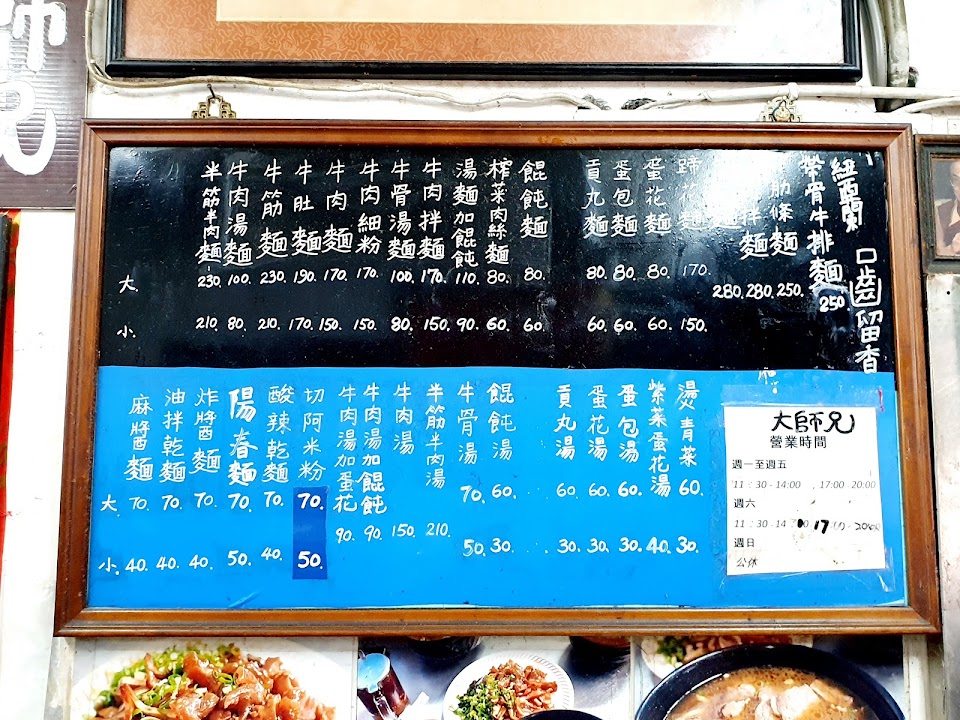 紐西蘭
口齒留香
帶骨牛排麵 250
筋條麵 250.
拌麵 280.
麵 280.
蹄花麵 170. 150.
蛋花麵 80. 60.
蛋包麵 80. 60.
貢丸麵 80. 60.
餛飩麵 80. 60.
榨菜肉絲麵 80. 60.
湯麵加餛飩 110. 90.
牛肉拌麵 170. 150.
牛骨湯麵 100. 80.
牛肉細粉 170. 150.
牛肉麵 170. 150.
牛肚麵 190. 170.
牛筋麵 230. 210.
牛肉湯麵 100. 80.
半筋半肉麵 230. 210.
大.
小.
燙青菜 60. 30.
紫菜蛋花湯 40.
蛋包湯 60. 30.
蛋花湯 60. 30.
貢丸湯 60. 30.
餛飩湯 60. 30.
牛骨湯 70. 50.
半筋半肉湯 210.
牛肉湯 150.
牛肉湯加餛飩 90.
牛肉湯加蛋花 90.
切阿米粉 70. 50.
酸辣乾麵 70. 40.
陽春麵 70. 50.
炸醬麵 70. 40.
油拌乾麵 70. 40.
麻醬麵 70. 40.
大.
小.
大師兄
營業時間
週一至週五
11：30-14:00 , 17:00-20:00
週六
週日
公休